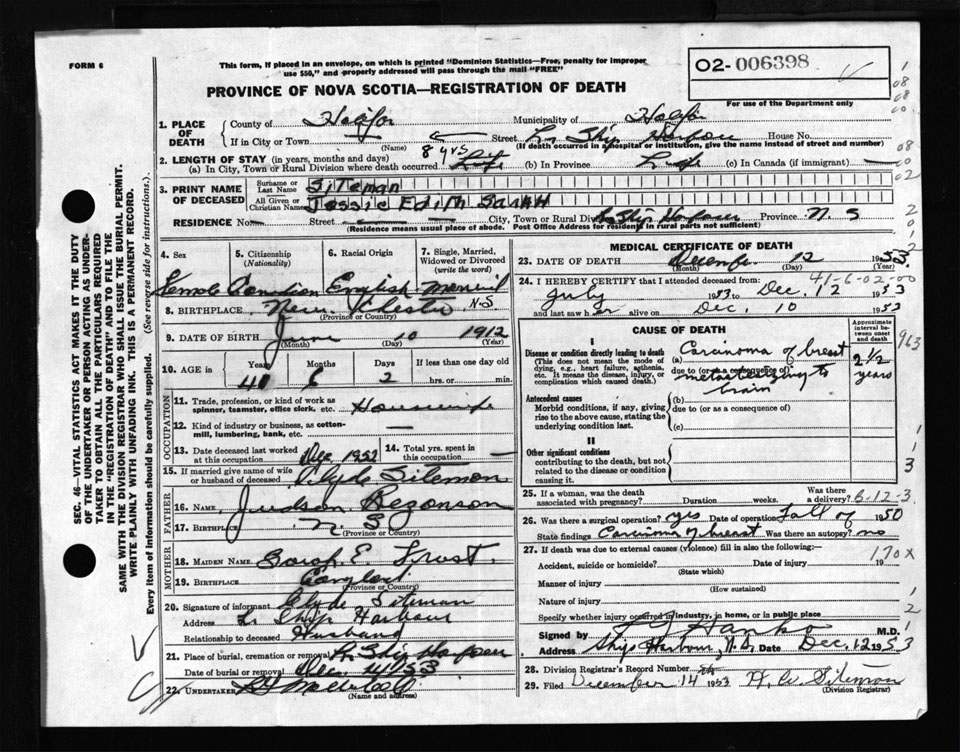 FORM 6
This form, if placed in an envelope, on which is printed "Dominion Statistics—Free, penalty for improper
use $50," and properly addressed will pass through the mail "FREE"
02-006398
For use of the Department only
PROVINCE OF NOVA SCOTIA—REGISTRATION OF DEATH
1. PLACE OF DEATH
County of Halifax Municipality of Halifax
If in City or Town (Name) Street L. Ship Harbour House No.
(If death occurred in a hospital or institution, give the name instead of street and number)
2. LENGTH OF STAY (in years, months and days)
(a) In City, Town or Rural Division where death occurred 8 yrs Life (b) In Province Life (c) In Canada (if immigrant) —
3. PRINT NAME OF DECEASED
Surname or Last Name Siteman
All Given or Christian Names Jessie Edith Sarah
RESIDENCE No. — Street — City, Town or Rural Div. L. Ship Harbour Province N. S
(Residence means usual place of abode. Post Office Address for residents in rural parts not sufficient)
4. Sex
5. Citizenship (Nationality)
6. Racial Origin
7. Single, Married, Widowed or Divorced (write the word)
Female Canadian English Married
8. BIRTHPLACE New Chester N.S
(Province or Country)
9. DATE OF BIRTH June 10 1912
(Month) (Day) (Year)
10. AGE in Years Months Days If less than one day old
41 6 2 hrs. or min.
OCCUPATION
11. Trade, profession, or kind of work as spinner, teamster, office clerk, etc. Housewife
12. Kind of industry or business, as cotton-mill, lumbering, bank, etc. —
13. Date deceased last worked at this occupation Dec 1952
14. Total yrs. spent in this occupation —
15. If married give name of wife or husband of deceased Clyde Siteman
FATHER
16. NAME Judson Bezonson
17. BIRTHPLACE N. S
(Province or Country)
MOTHER
18. MAIDEN NAME Sarah E. Frost
19. BIRTHPLACE England
(Province or Country)
20. Signature of informant Clyde Siteman
Address L. Ship Harbour
Relationship to deceased Husband
21. Place of burial, cremation or removal L. Ship Harbour
Date of burial or removal Dec. 14/53
22. UNDERTAKER
(Name and address)
MEDICAL CERTIFICATE OF DEATH
23. DATE OF DEATH December 12 1953
(Month) (Day) (Year)
41-6-02-00
24. I HEREBY CERTIFY that I attended deceased from:
July 1953 to Dec. 12 1953
and last saw her alive on Dec. 10 1953
CAUSE OF DEATH
Approximate interval between onset and death
I
Disease or condition directly leading to death
(This does not mean the mode of dying, e.g., heart failure, asthenia, etc. It means the disease, injury, or complication which caused death.)
(a) Carcinoma of breast
due to (or as a consequence of)
metastasizing to
brain
2 1/2 years
Antecedent causes
Morbid conditions, if any, giving rise to the above cause, stating the underlying condition last.
(b)
due to (or as a consequence of)
(c)
II
Other significant conditions
contributing to the death, but not related to the disease or condition causing it.
25. If a woman, was the death associated with pregnancy? Duration weeks. Was there a delivery? 6-12-3
26. Was there surgical operation? yes Date of operation Fall of 1950
State findings Carcinoma of breast Was there an autopsy? no
27. If death was due to external causes (violence) fill in also the following:—
170X
Accident, suicide or homicide? (State which) Date of injury 19
Manner of injury
(How sustained)
Nature of injury
Specify whether injury occurred in industry, in home, or in public place
Signed by M.D.
Address Ship Harbour, N.S. Date Dec. 12 1953
28. Division Registrar's Record Number
29. Filed December 14 1953 H. W. Siteman
(Division Registrar)
SEC. 46—VITAL STATISTICS ACT MAKES IT THE DUTY
OF THE UNDERTAKER OR PERSON ACTING AS UNDERTAKER
TO OBTAIN ALL THE PARTICULARS REQUIRED
IN THE "REGISTRATION OF DEATH" AND TO FILE THE
SAME WITH THE DIVISION REGISTRAR WHO SHALL ISSUE THE BURIAL PERMIT.
WRITE PLAINLY WITH UNFADING INK. THIS IS A PERMANENT RECORD.
Every item of information should be carefully supplied. (See reverse side for instructions.)
963